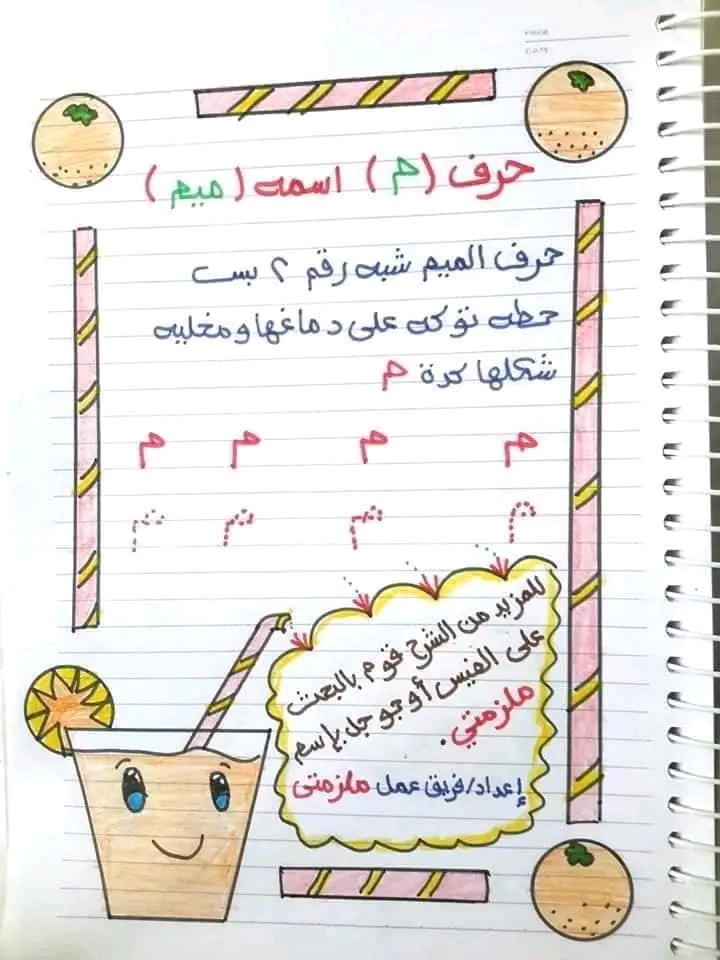 PAGE
DATE
حرف (م) اسمه (ميم)
حرف الميم شبه رقم ٢ بس
حطه توكه على دماغها ومخليه
شكلها كدة م
م م م م
م م م م
للمزيد من الشرح قوم بالبحث
على الفيس أو جوجل بإسم
ملزمتي.
إعداد/فريق عمل ملزمتى